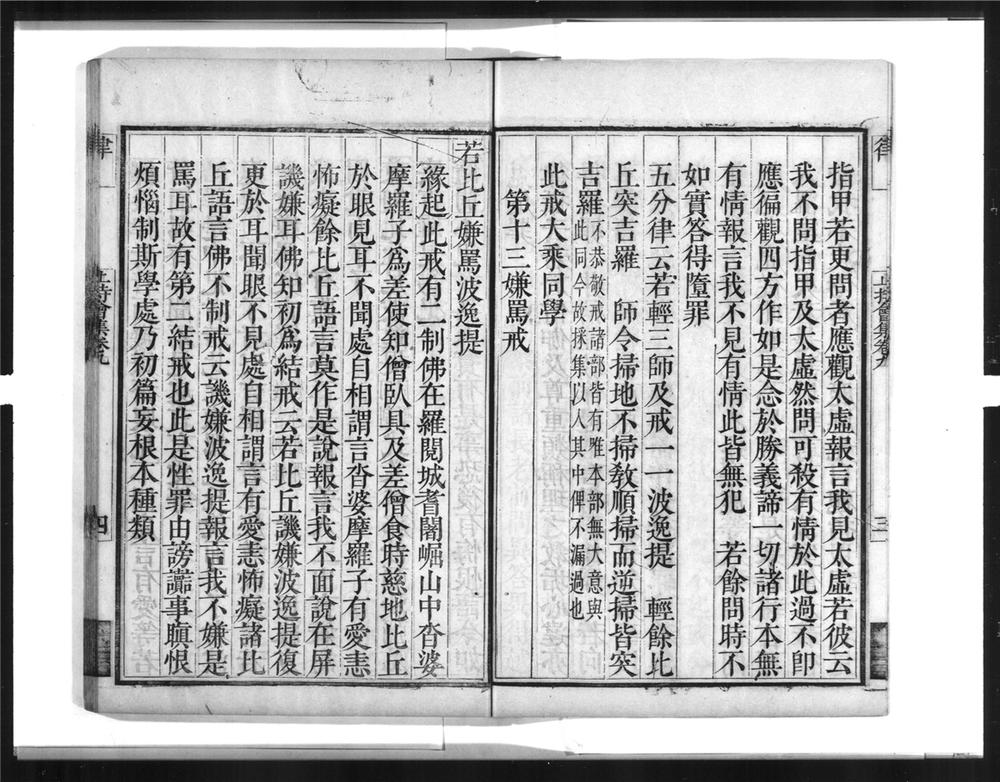 指甲若更問者應觀太虛報言我見太虛若彼云
我不問指甲及太虛然問可殺有情於此過不即
應徧觀四方作如是念於勝義諦一切諸行本無
有情報言我不見有情此皆無犯　若餘問時不
如實答得墮罪
五分律云若輕三師及戒一一波逸提　輕餘比
丘突吉羅　師令掃地不掃教順掃而逆掃皆突
吉羅不恭敬戒諸部皆有唯本部無大意與
此同今故採集以入其中俾不漏過也
此戒大乘同學
第十三嫌罵戒
若比丘嫌罵波逸提
緣起此戒有二制佛在羅閱城耆闍崛山中沓婆
摩羅子為差使知僧臥具及差僧食時慈地比丘
於眼見耳不聞處自相謂言沓婆摩羅子有愛恚
怖癡餘比丘語言莫作是說報言我不面說在屏
譏嫌耳佛知初為結戒云若比丘譏嫌波逸提復
更於耳聞眼不見處自相謂言有愛恚怖癡諸比
丘語言佛不制戒云譏嫌波逸提報言我不嫌是
罵耳故有第二結戒也此是性罪由謗讟事瞋恨
煩惱制斯學處乃初篇妄根本種類
律
止持會集卷九
三
律
止持會集卷九
四